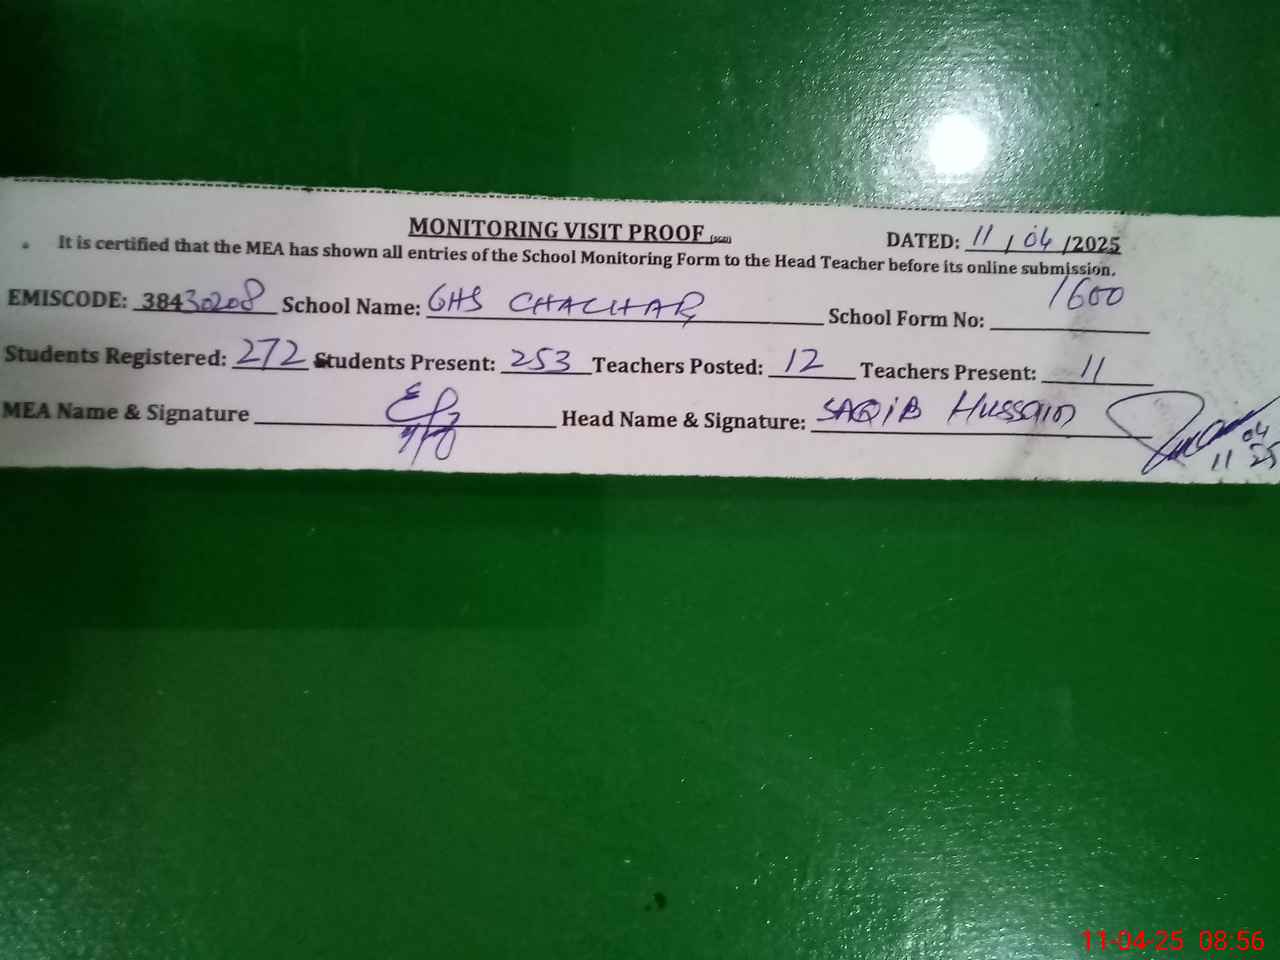 MONITORING VISIT PROOF (SGD) DATED: 11 / 04 /2025
It is certified that the MEA has shown all entries of the School Monitoring Form to the Head Teacher before its online submission.
EMISCODE: 38430208 School Name: GHS CHACHAR School Form No: 1600
Students Registered: 272 Students Present: 253 Teachers Posted: 12 Teachers Present: 11
MEA Name & Signature Head Name & Signature: SAQIB HUSSAIN
11 04 25
11-04-25 08:56